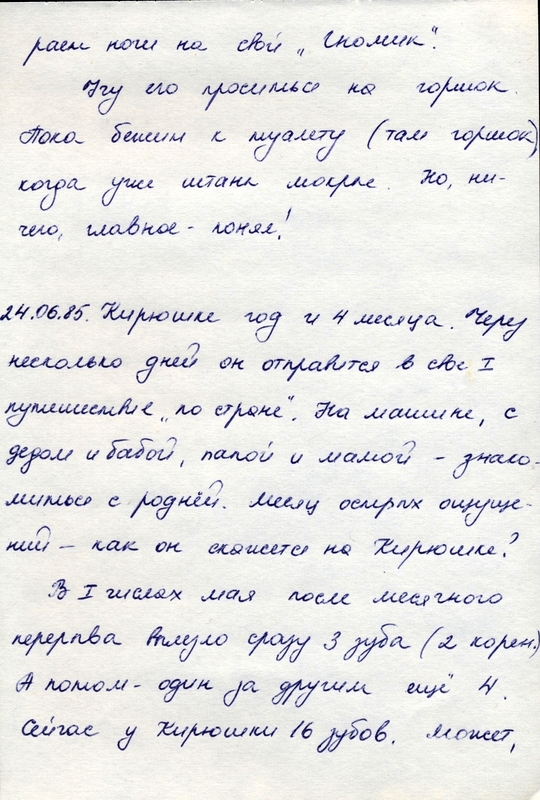 раем ноги на свой „Гномик".
Учу его проситься на горшок.
Пока бежим к туалету (там горшок),
когда уже штаны мокрые. Но, ни-
чего, главное - понял!
24.06.85. Кирюшке год и 4 месяца. Через
несколько дней он отправится в свое I
путешествие „по стране". На машине, с
дедом и бабой, папой и мамой – знако-
миться с роднёй. Месяц острых ощуще-
ний – как он скажется на Кирюшке?
В I числах мая после месячного
перерыва вылезло сразу 3 зуба (2 корен.)
А потом - один за другим ещё 4.
Сейчас у Кирюшки 16 зубов. Может,